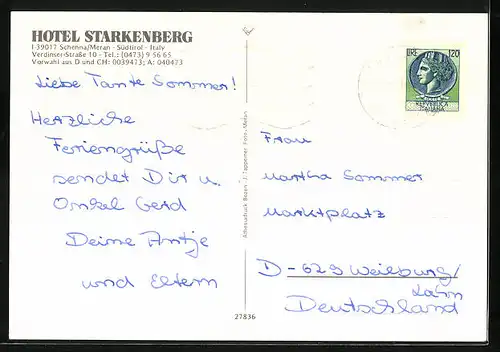 HOTEL STARKENBERG
I-39017 Schenna/Meran - Südtirol - Italy
Verdinser-Straße 10 - Tel.: (0473) 9 56 65
Vorwahl aus D und CH: 0039473; A: 040473
LIRE 120
Liebe Tante Sommer!
Herzliche
Feriengrüße
sendet Dir u.
Onkel Gerd
Deine Antje
und Eltern
Frau
Martha Sommer
Marktplatz
D-629 Weilburg/
Lahn
Deutschland
27836